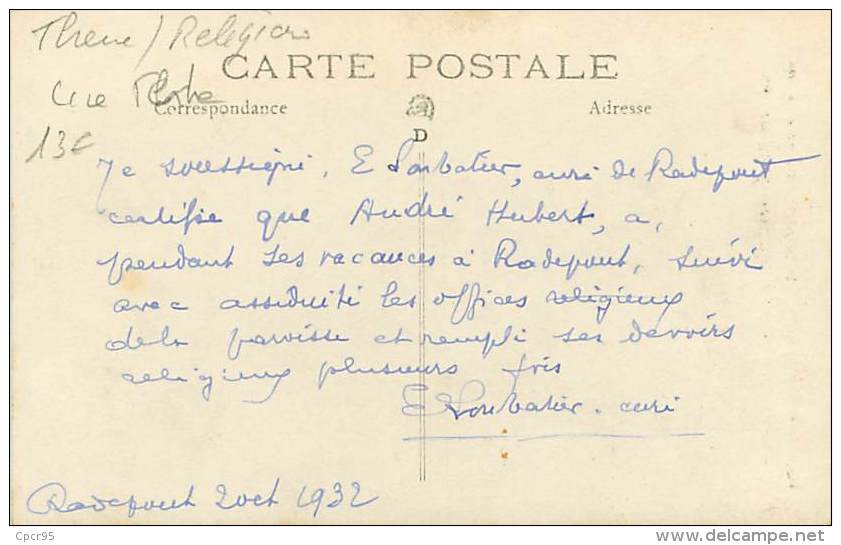 Theme / Religion
CARTE POSTALE
Correspondance
Adresse
13€
D
Je soussigné, E Loubatier, curé de Radepont
certifie que André Hubert, a,
pendant ses vacances à Radepont, suivi
avec assiduité les offices religieux
de la paroisse et rempli ses devoirs
religieux plusieurs fois
E Loubatier. curé
Radepont 2 oct 1932
Cpcr95
www.delcampe.net